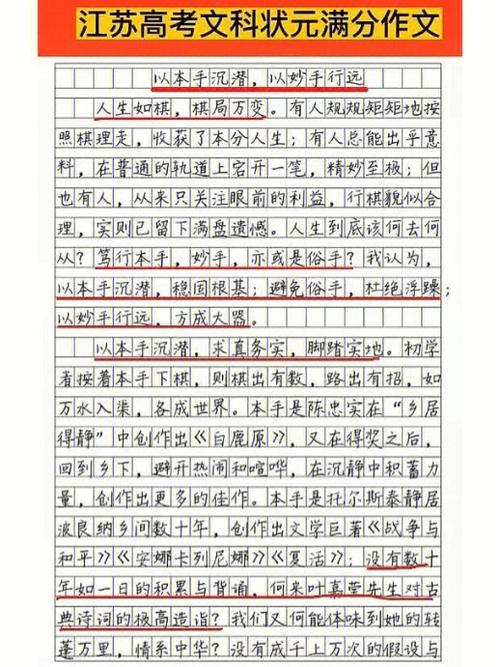 江苏高考文科状元满分作文
以本手沉潜，以妙手行远
人生如棋，棋局万变。有人规规矩矩地按
照棋理走，收获了本分人生；有人总能出乎意
料，在普通的轨道上宕开一笔，精妙至极；但
也有人，从来只关注眼前的利益，行棋貌似合
理，实则已留下满盘遗憾。人生到底该何去何
从？笃行本手，妙手，亦或是俗手？我认为，
以本手沉潜，稳固根基；避免俗手，杜绝浮躁；
以妙手行远，方成大器。
以本手沉潜，求真务实，脚踏实地。初学
者按着本手下棋，则棋出有数，路出有招，如
万水入渠，各成世界。本手是陈忠实在“乡居
得静”中创作出《白鹿原》，又在得奖之后，
回到乡下，避开热闹和喧哗，在沉静中积蓄力
量，创作出更多的佳作。本手是托尔斯泰静居
波良纳乡间数十年，创作出文学巨著《战争与
和平》《安娜卡列尼娜》《复活》；没有数十
年如一日的积累与背诵，何来叶嘉莹先生对古
典诗词的极高造诣？我们又何能体味到她的转
蓬万里，情系中华？没有成千上万次的假设与